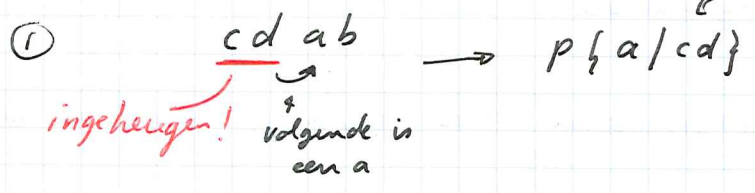 ① cd ab → p{a/cd}
in geheugen! volgende is
een a